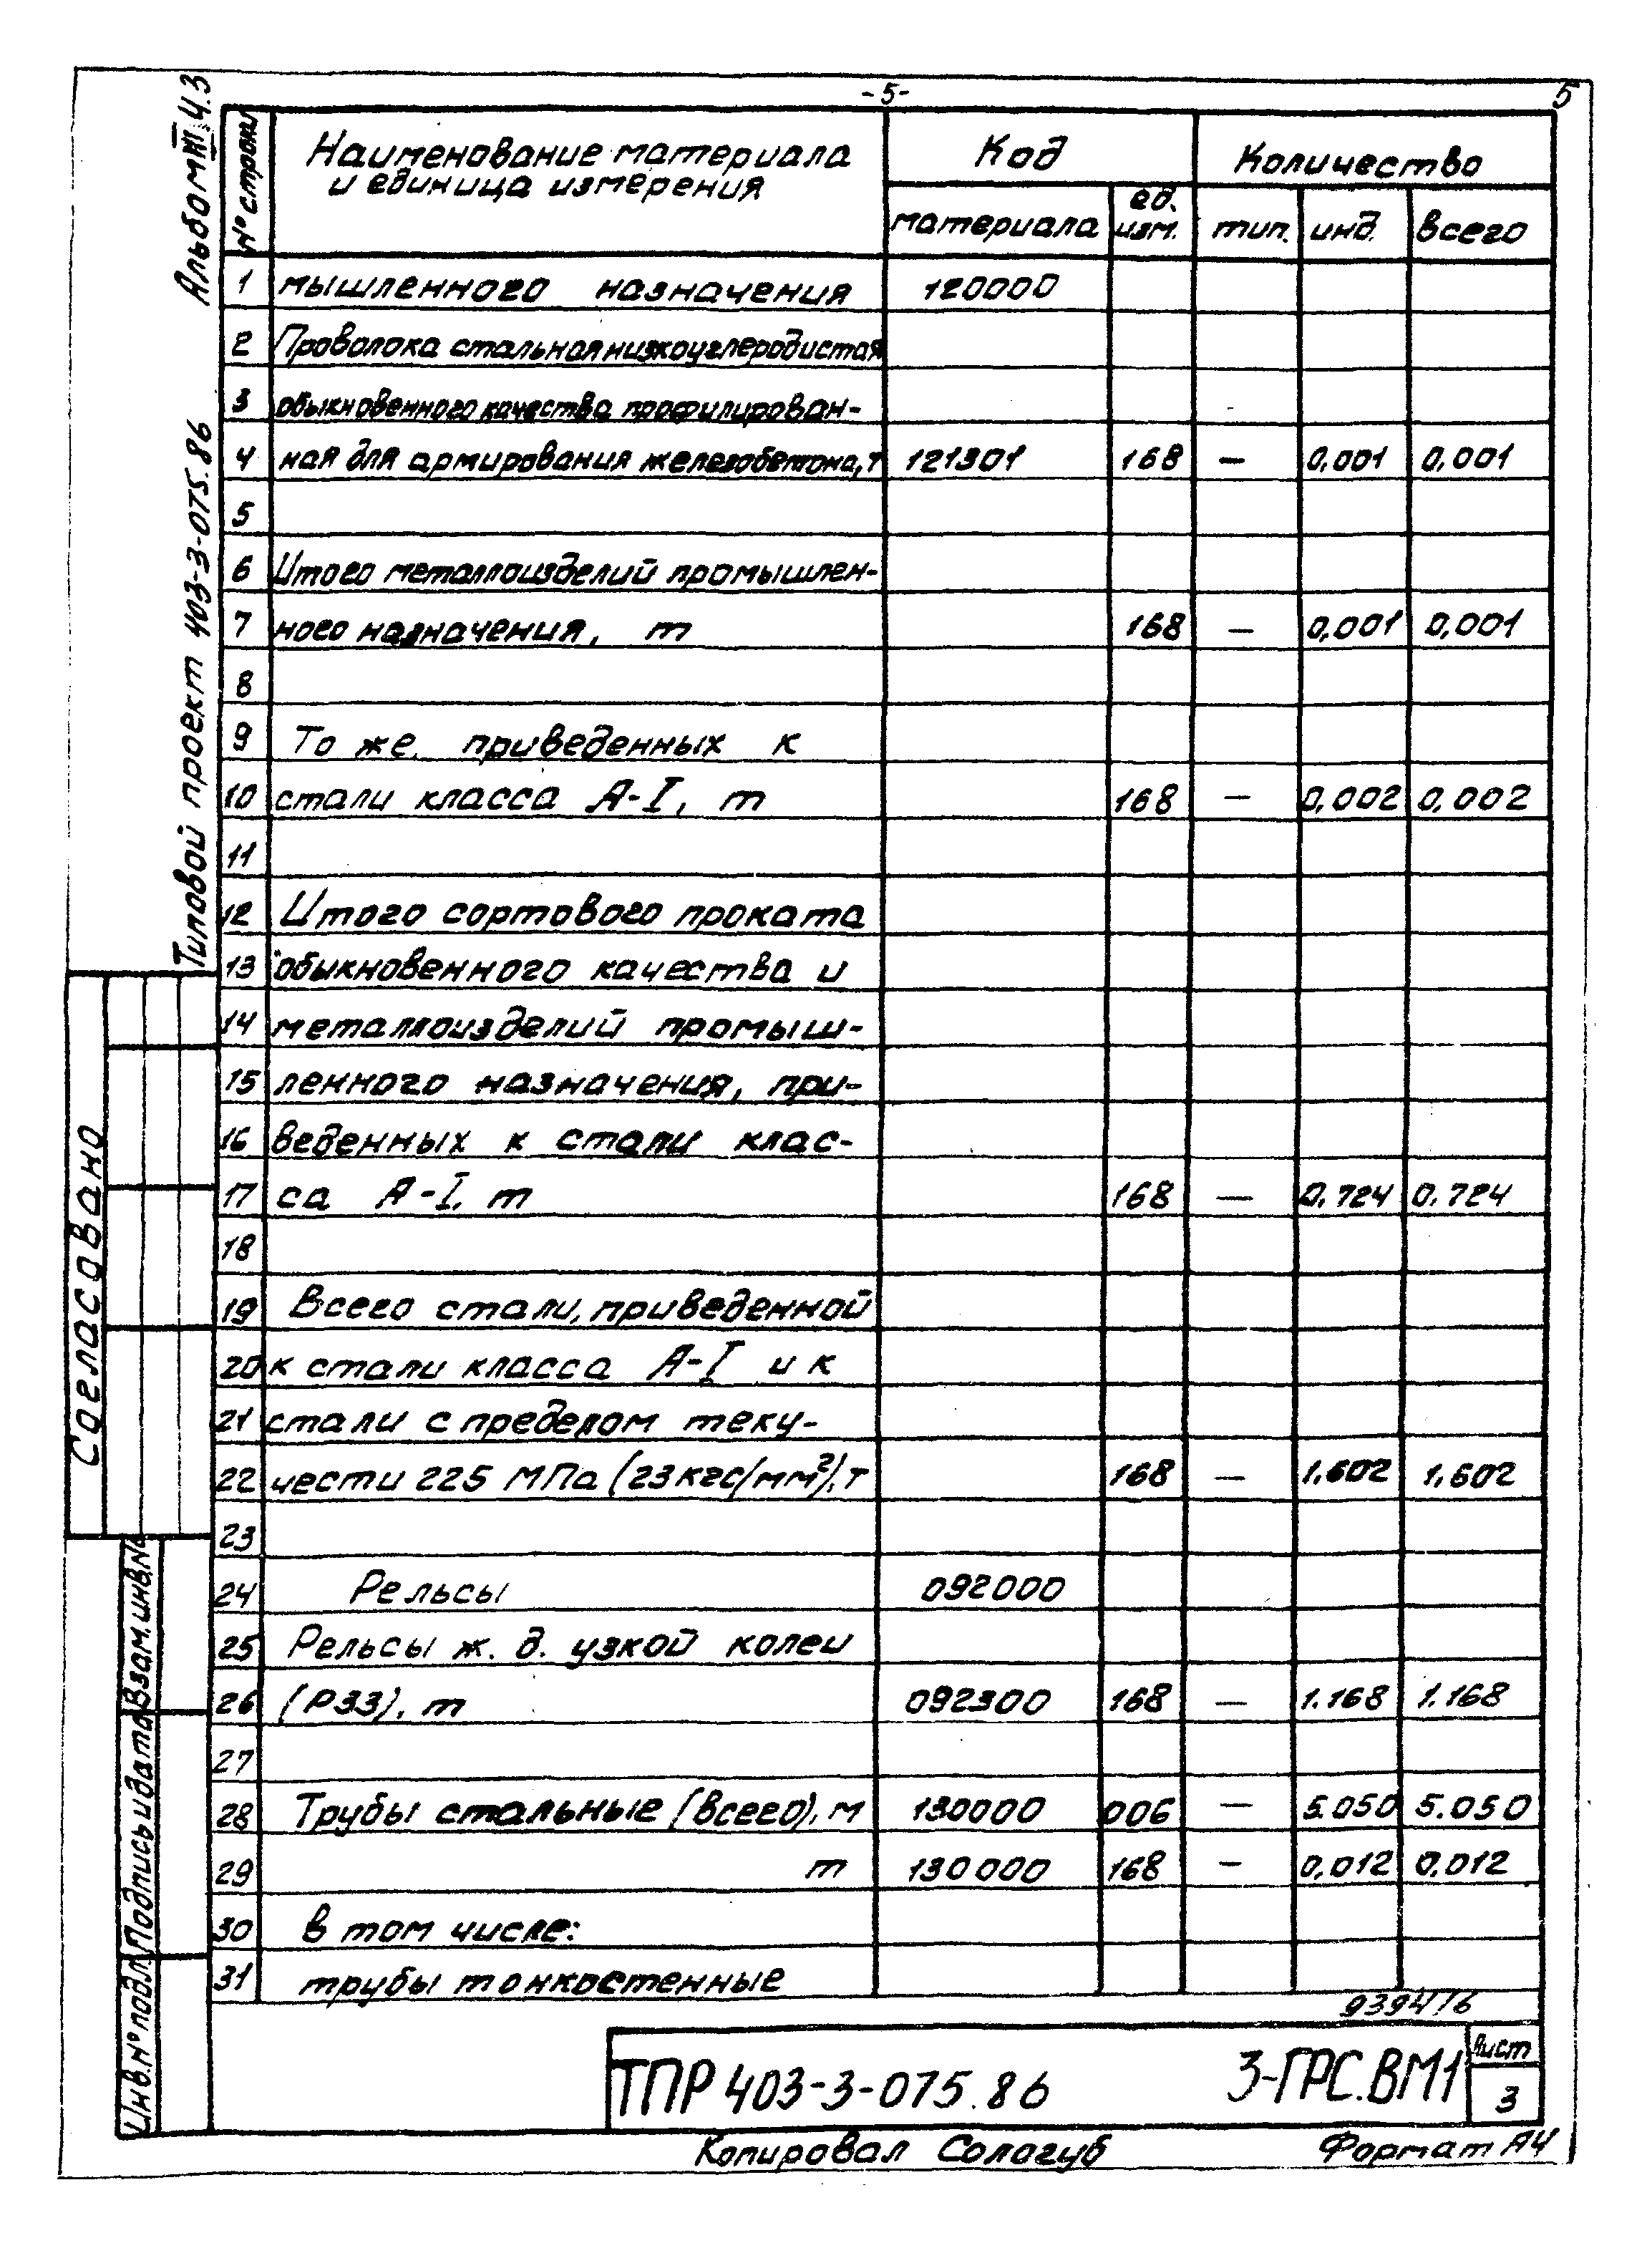 -5-
5
Альбом III ч.3
Типовой проект 403-3-075.86
№ строки
Наименование материала
и единица измерения
Код
Количество
материала
ед.
изм.
тип.
инд.
всего
1 мышленного назначения 120000
2 Проволока стальная низкоуглеродистая
3 обыкновенного качества профилирован-
4 ная для армирования железобетона, т 121301 168 — 0,001 0,001
5
6 Итого металлоизделий промышлен-
7 ного назначения, т 168 — 0,001 0,001
8
9 То же, приведенных к
10 стали класса А-I, т 168 — 0,002 0,002
11
12 Итого сортового проката
13 обыкновенного качества и
14 металлоизделий промыш-
15 ленного назначения, при-
16 веденных к стали клас-
17 са А-I, т 168 — 0.724 0.724
18
19 Всего стали, приведенной
20 к стали класса А-I и к
21 стали с пределом теку-
22 чести 225 МПа (23кгс/мм²), т 168 — 1.602 1.602
23
24 Рельсы 092000
25 Рельсы ж.д. узкой колеи
26 (Р33), т 092300 168 — 1.168 1.168
27
28 Трубы стальные (всего), м 130000 006 — 5.050 5.050
29 т 130000 168 — 0,012 0,012
30 в том числе:
31 трубы тонкостенные
Согласовано
Взам. инв. №
Подпись и дата
Инв. № подл.
9394/6
ТПР 403-3-075.86
3-ГРС.ВМ1
Лист
3
Копировал Сологуб
Формат А4